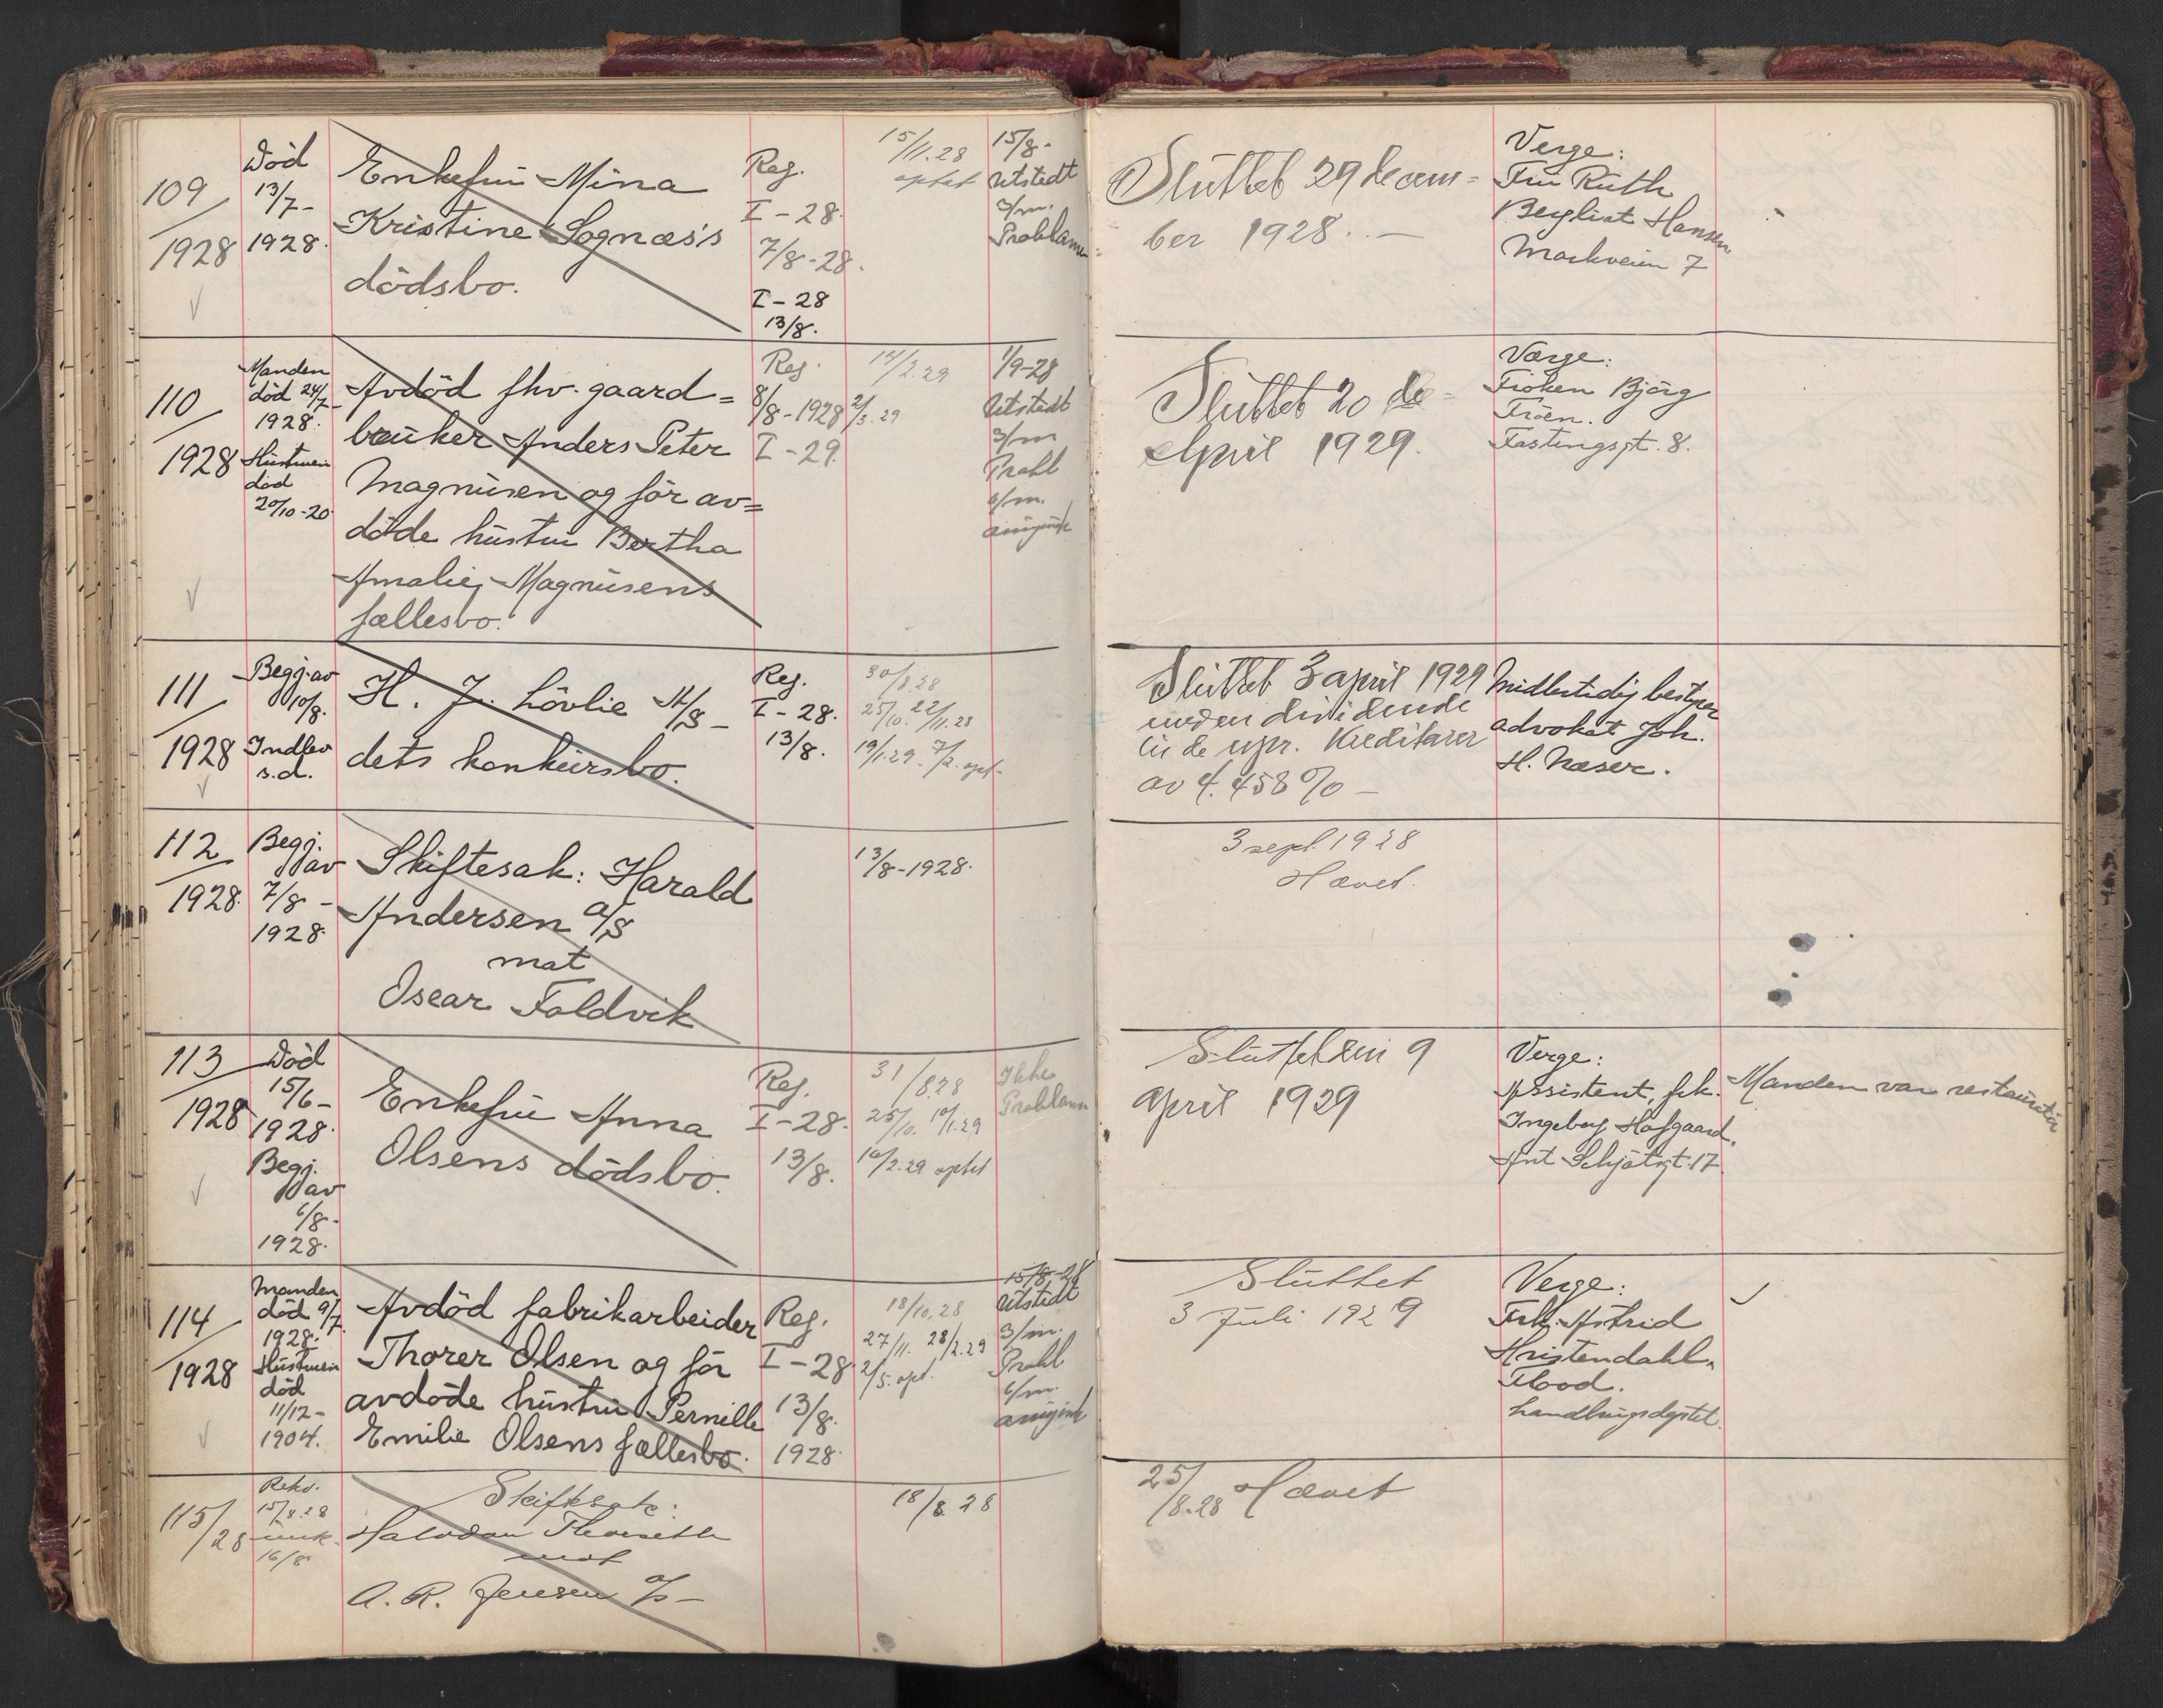 109
1928
Død
13/7-
1928.
Enkefru Mina
Kristine Sognæs's
dödsbo.
Reg.
I-28.
7/8-28.
I-28
13/8.
15/11.28
optat
15/8-
Utstedt
3/m.
Proklama
Sluttet 29 decem=
ber 1928.
Verge:
Fru Ruth
Bergliot Hansen
Markveien 7
110
1928
Manden
död 24/7-
1928.
Hustruen
död
20/10-20
Avdöd fhv. gaard=
bruker Anders Peter
Magnusen og för av=
döde hustru Bertha
Amalie Magnusens
fællesbo.
Reg.
8/8-1928
I-29.
14/2.29
2/3.29
1/9-28
Utstedt
3/m
Prokl
6/m.
Sluttet 20 de
April 1929.
Værge:
Fröken Björg
Tröen.
Fastingsgt. 8.
111
1928
Begj. av
10/8.
Indlev
s.d.
H. J. Lövlie A/S-
dets konkursbo.
Reg.
I-28.
13/8.
30/8.28
25/10. 22/11.28
19/1.29. 7/2. opt.
Sluttet 3 april 1929
uten dividende
til de upr. Kreditorer
av 4.458%
Midlertidig bestyrer
advokat Joh.
H. Næser.
112
1928.
Begj.
av
7/8-
1928
Skiftesak: Harald
Andersen A/S
mot
Oscar Foldvik
13/8-1928.
3 sept. 1928
Hævet.
113
1928
Død
15/6-
1928.
Begj.
av
6/8-
1928.
Enkefru Anna
Olsens dödsbo.
Reg.
I-28.
13/8.
31/8.28
25/10. 10/1.29
16/2.29 optat
Ikke
Proklama
Sluttet den 9
April 1929
Verge:
Assistent, frk.
Ingeborg Hofgaard.
Ant Schjötsgt. 17.
Manden var restauratör
114
1928
Manden
död 9/7.
1928.
Hustruen
död
11/12-
1904.
Avdöd fabrikarbeider
Thorer Olsen og för
avdöde hustru Pernille
Emilie Olsens fællesbo.
Reg.
I-28.
13/8.
1928.
18/10.28
27/11. 28/2.29
2/5. opt.
15/8-28
Utstedt
3/m.
Prokl
6/m.
Sluttet
3 Juli 1929
Verge:
Frk. Astrid
Kristendahl-
Flood.
115/28
Rekv.
15/8.28
16/8
Skiftesak:
Halvdan
mot
A. R. Jensen A/S-
18/8 28
25/8-28 Hævet